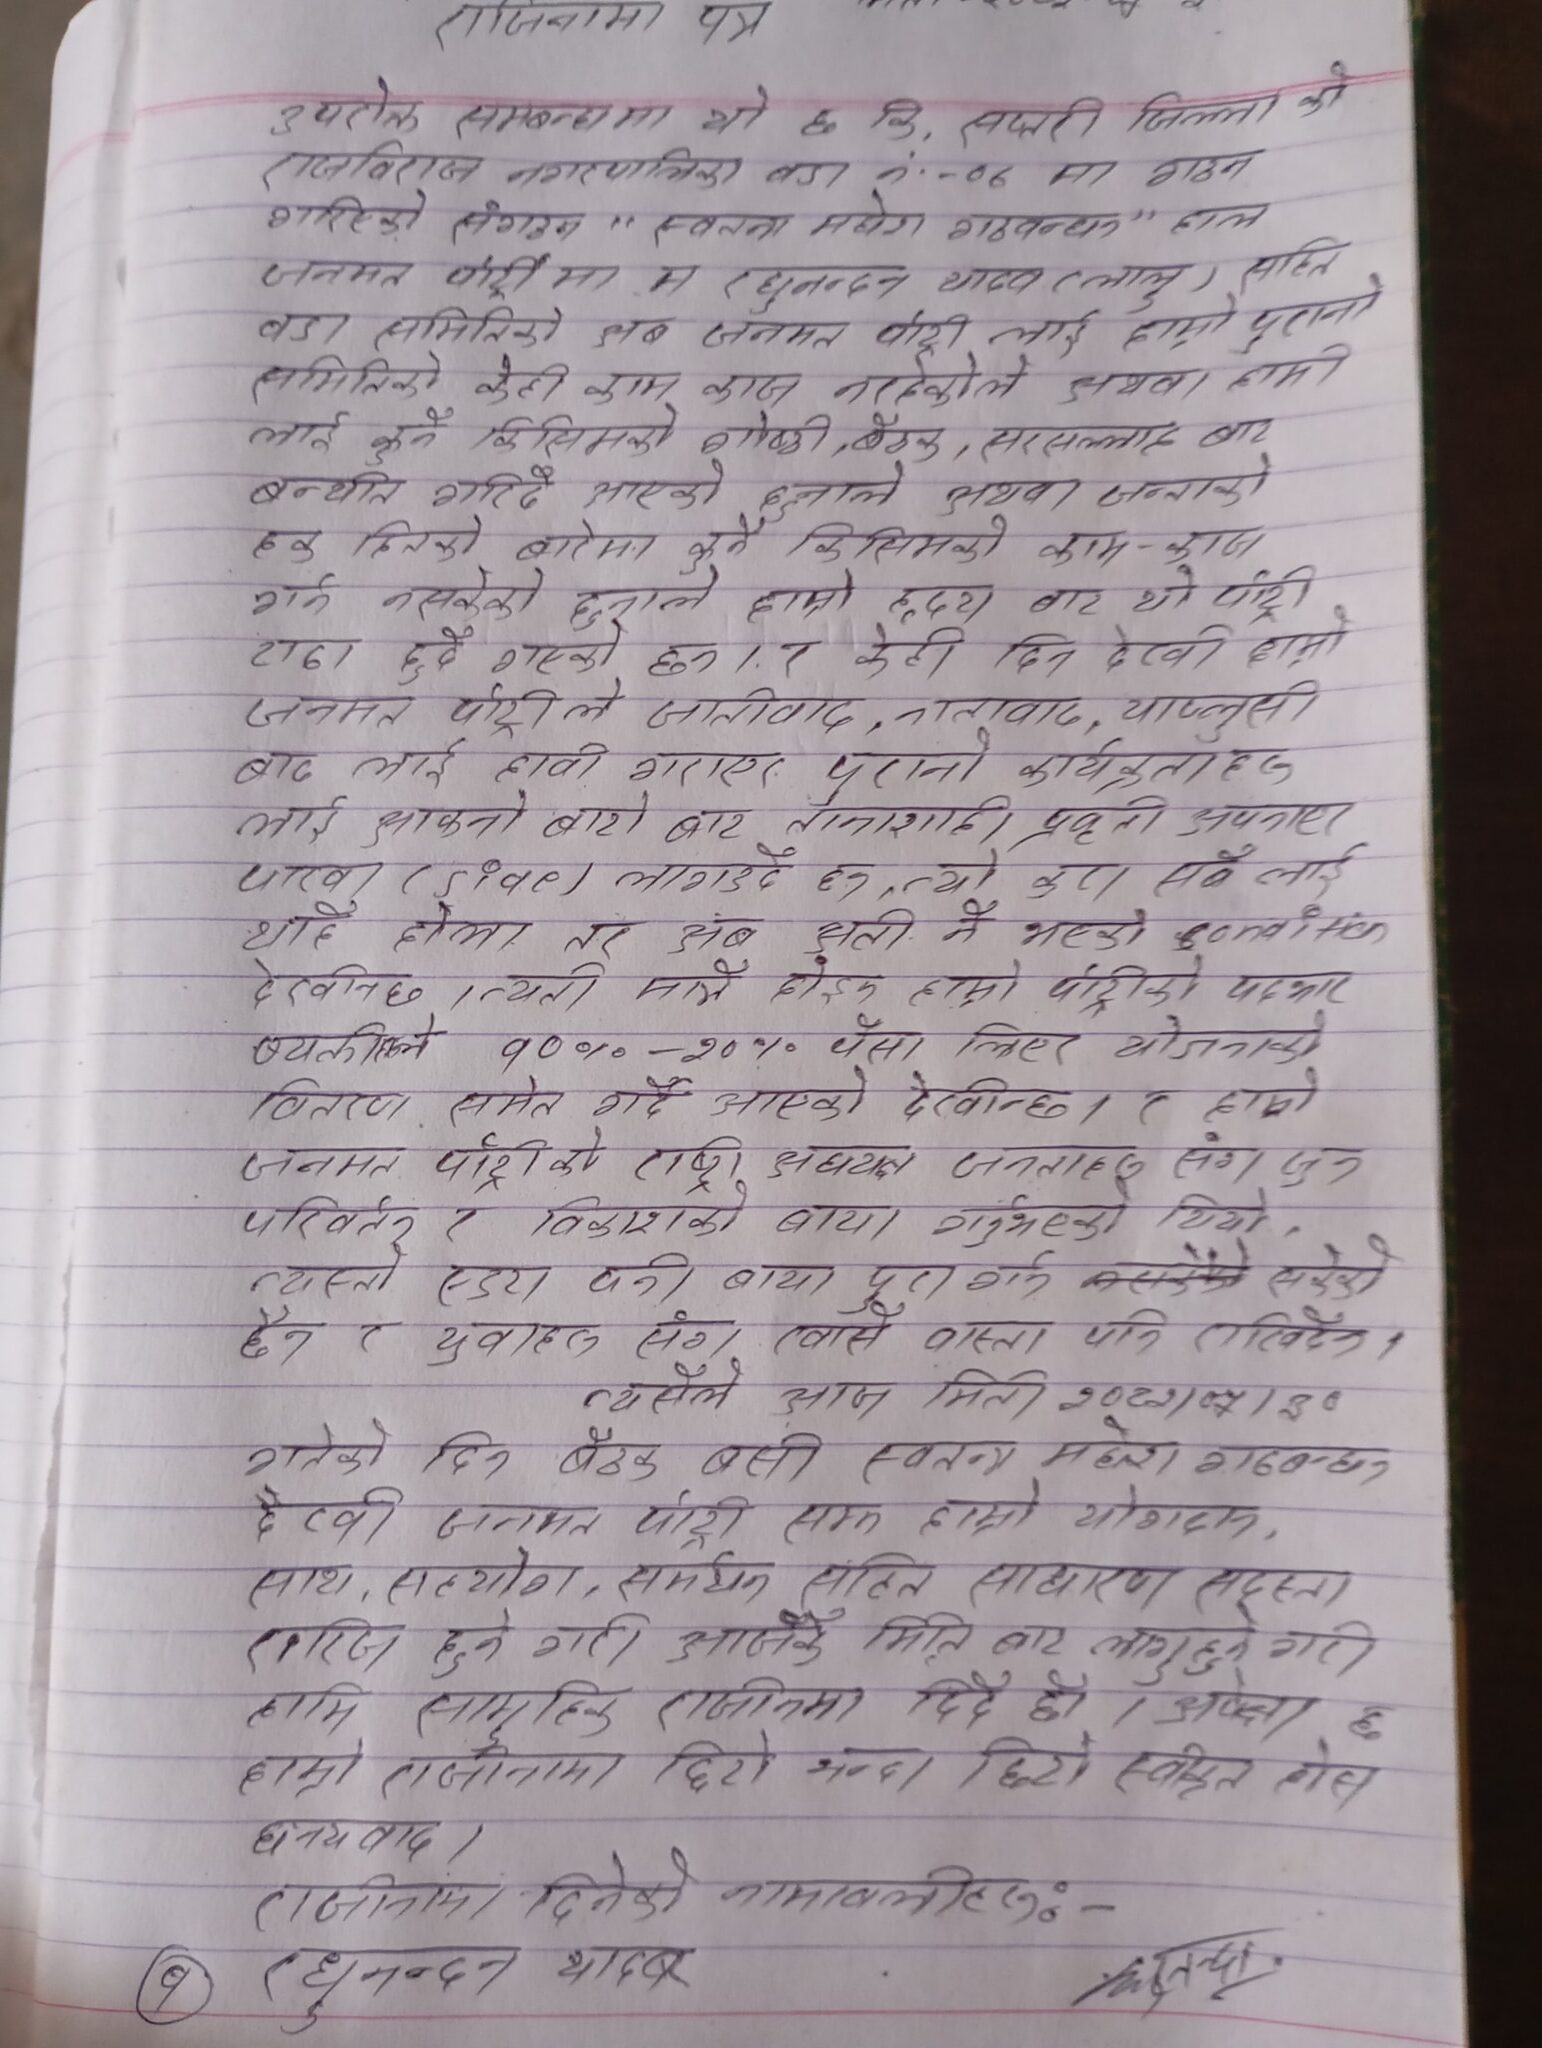 राजिनामा पत्र
उपरोक्त सम्बन्धमा यो छ कि, सप्तरी जिल्ला को
राजविराज नगरपालिका वडा नं.-०६ मा गठन
गरिएको संगठन "स्वतन्त्र मधेश गठवन्धन" हाल
जनमत पार्ट्री मा म रघुनन्दन यादव (लालु) सहित
वडा समितिको अब जनमत पार्ट्री लाई हाम्रो पुरानो
समितिको केही काम काज नरहेकोले अथवा हामी
लाई कुनै किसिमको गोष्ठी, बैठक, सरसल्लाह बाट
बन्चीत गरिदै आएको हुनाले अथवा जन्ताको
हक हितको बारेमा कुनै किसिमको काम-काज
गर्न नसकेको हुनाले हाम्रो हृदय बाट यो पार्ट्री
टाढा हुदै गएको छन । र केही दिन देखी हाम्रो
जनमत पार्ट्रीले जातीवाद, नातावाद, चाप्लुसी
बाद लाई हावी गराएर पुरानो कार्यक्रताहरु
लाई आफनो बाटो बाट तानाशाही प्रवृती अपनाएर
पाखा लागाउदै छन, त्यो कुरा सबै लाई
थाहै होला तर अब अती नै भएको
देखीन्छ । त्यती मात्रै होइन हाम्रो पार्ट्रीको पदभार
ब्यक्तीहरुले १०%-२०% पैसा लिएर योजनाको
वितरण समेत गर्दै आएको देखीन्छ । र हाम्रो
जनमत पार्ट्रीको राष्ट्री अध्यक्ष जनताहरु संग जुन
परिवर्तन र विकाशको बाचा गर्नुभएको थियो,
त्यस्तो एउटा पनी बाचा पुरा गर्न सकेको
छैन र युवाहरु संग खासै वास्ता पनि राखिदैन ।
त्यसैले आज मिती २०८२/०५/३०
गतेको दिन बैठक बसी स्वतन्त्र मधेश गठबन्धन
देखी जनमत पार्ट्री सम्म हाम्रो योगदान,
साथ, सहयोग, समर्थन सहित साधारण सदस्ता
खारिज हुने गरी आजैकै मिति बाट लागुहुने गरी
हामि सामुहिक राजीनमा दिदै छौ । अपेक्षा छ
हाम्रो राजीनामा छिटो भन्दा छिटो स्वीकृत होस
धन्यवाद ।
राजीनामा दिनेको नामावलीहरुः-
१ रघुनन्दन यादव